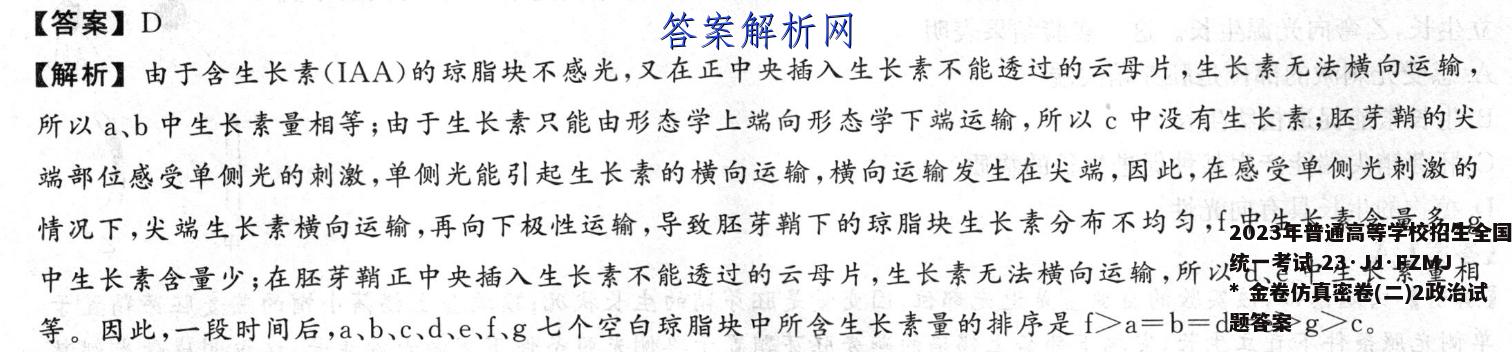 【答案】D
答案解析网
【解析】由于含生长素(IAA)的琼脂块不感光,又在正中央插入生长素不能透过的云母片,生长素无法横向运输,
所以a、b中生长素量相等;由于生长素只能由形态学上端向形态学下端运输,所以c中没有生长素;胚芽鞘的尖
端部位感受单侧光的刺激,单侧光能引起生长素的横向运输,横向运输发生在尖端,因此,在感受单侧光刺激的
情况下,尖端生长素横向运输,再向下极性运输,导致胚芽鞘下的琼脂块生长素分布不均匀,f中生长素含量多,g
中生长素含量少;在胚芽鞘正中央插入生长素不能透过的云母片,生长素无法横向运输,所以d、e中生长素量相
等。因此,一段时间后,a、b、c、d、e、f、g七个空白琼脂块中所含生长素量的排序是f>a=b=d>g>c。
2023年普通高等学校招生全国
统一考试 23·JJ·FZMJ
* 金卷仿真密卷(二)2政治试
题答案